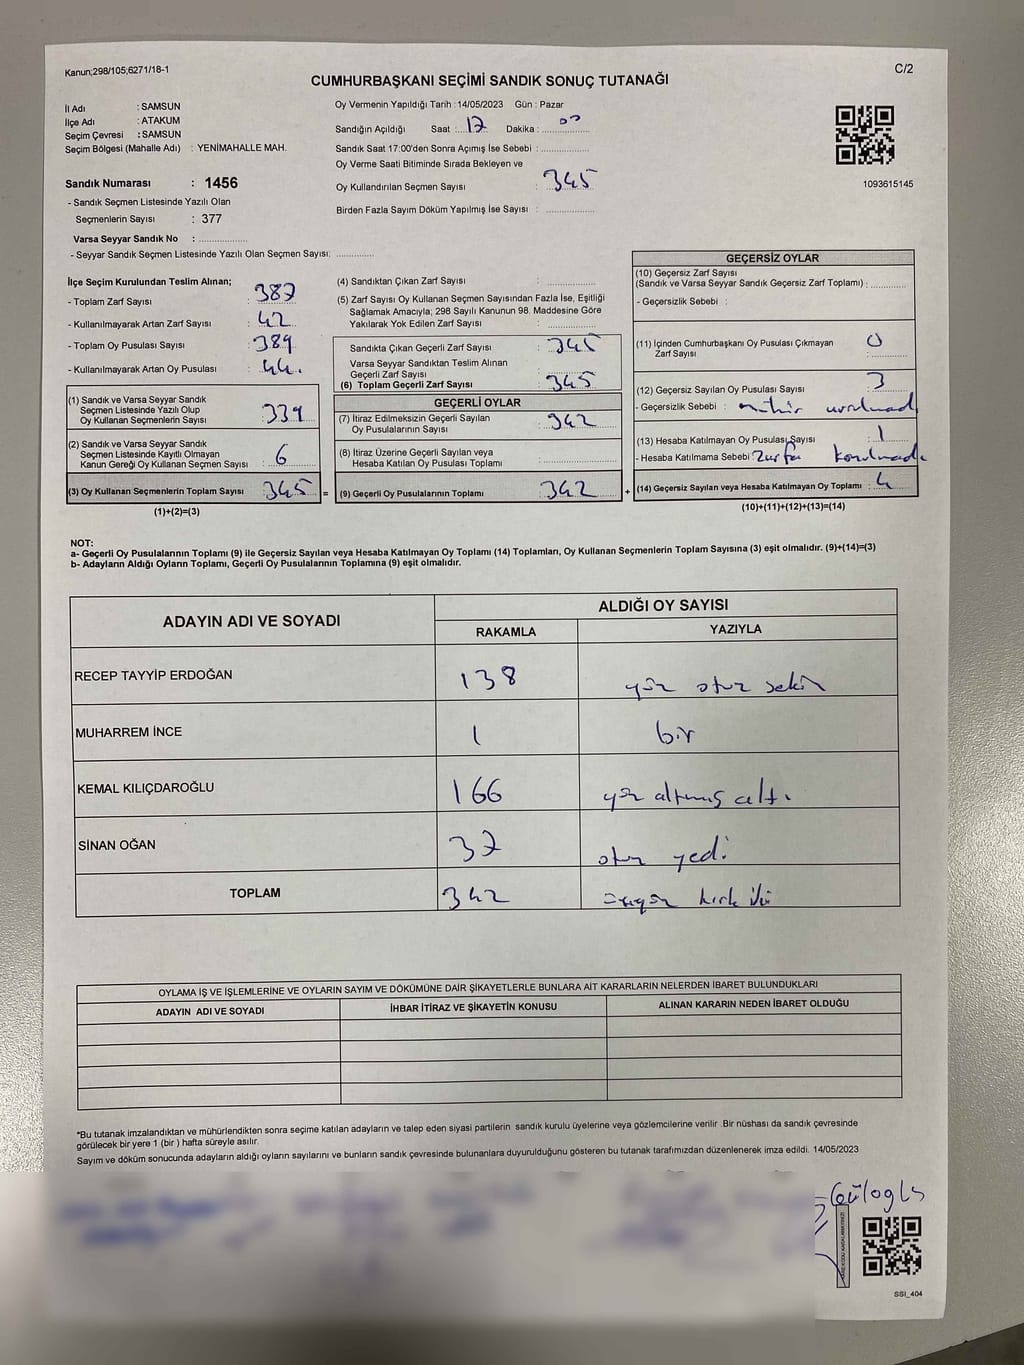 Kanun;298/105;6271/18-1
C/2
CUMHURBAŞKANI SEÇİMİ SANDIK SONUÇ TUTANAĞI
İl Adı : SAMSUN
İlçe Adı : ATAKUM
Seçim Çevresi : SAMSUN
Seçim Bölgesi (Mahalle Adı) : YENİMAHALLE MAH.
Oy Vermenin Yapıldığı Tarih :14/05/2023 Gün : Pazar
Sandığın Açıldığı Saat : 17 Dakika : 00
Sandık Saat 17:00'den Sonra Açımış İse Sebebi :
Oy Verme Saati Bitiminde Sırada Bekleyen ve
Oy Kullandırılan Seçmen Sayısı : 345
Birden Fazla Sayım Döküm Yapılmış İse Sayısı :
1093615145
Sandık Numarası : 1456
- Sandık Seçmen Listesinde Yazılı Olan
Seçmenlerin Sayısı : 377
Varsa Seyyar Sandık No :
- Seyyar Sandık Seçmen Listesinde Yazılı Olan Seçmen Sayısı:
İlçe Seçim Kurulundan Teslim Alınan;
- Toplam Zarf Sayısı : 387
- Kullanılmayarak Artan Zarf Sayısı : 42
- Toplam Oy Pusulası Sayısı : 389
- Kullanılmayarak Artan Oy Pusulası : 44.
(1) Sandık ve Varsa Seyyar Sandık
Seçmen Listesinde Yazılı Olup
Oy Kullanan Seçmenlerin Sayısı : 339
(2) Sandık ve Varsa Seyyar Sandık
Seçmen Listesinde Kayıtlı Olmayan
Kanun Gereği Oy Kullanan Seçmen Sayısı : 6
(3) Oy Kullanan Seçmenlerin Toplam Sayısı 345 =
(1)+(2)=(3)
(4) Sandıktan Çıkan Zarf Sayısı :
(5) Zarf Sayısı Oy Kullanan Seçmen Sayısından Fazla İse, Eşitliği
Sağlamak Amacıyla; 298 Sayılı Kanunun 98. Maddesine Göre
Yakılarak Yok Edilen Zarf Sayısı :
Sandıkta Çıkan Geçerli Zarf Sayısı : 345
Varsa Seyyar Sandıktan Teslim Alınan
Geçerli Zarf Sayısı :
(6) Toplam Geçerli Zarf Sayısı : 345
GEÇERLİ OYLAR
(7) İtiraz Edilmeksizin Geçerli Sayılan
Oy Pusulalarının Sayısı : 342
(8) İtiraz Üzerine Geçerli Sayılan veya
Hesaba Katılan Oy Pusulası Toplamı :
(9) Geçerli Oy Pusulalarının Toplamı : 342 +
GEÇERSİZ OYLAR
(10) Geçersiz Zarf Sayısı
(Sandık ve Varsa Seyyar Sandık Geçersiz Zarf Toplamı) :
- Geçersizlik Sebebi :
(11) İçinden Cumhurbaşkanı Oy Pusulası Çıkmayan
Zarf Sayısı : 0
(12) Geçersiz Sayılan Oy Pusulası Sayısı : 3
- Geçersizlik Sebebi : mühür vurulmadı
(13) Hesaba Katılmayan Oy Pusulası Sayısı : 1
- Hesaba Katılmama Sebebi : Zarfa konulmadı
(14) Geçersiz Sayılan veya Hesaba Katılmayan Oy Toplamı : 4
(10)+(11)+(12)+(13)=(14)
NOT:
a- Geçerli Oy Pusulalarının Toplamı (9) ile Geçersiz Sayılan veya Hesaba Katılmayan Oy Toplamı (14) Toplamları, Oy Kullanan Seçmenlerin Toplam Sayısına (3) eşit olmalıdır. (9)+(14)=(3)
b- Adayların Aldığı Oyların Toplamı, Geçerli Oy Pusulalarının Toplamına (9) eşit olmalıdır.
ADAYIN ADI VE SOYADI
ALDIĞI OY SAYISI
RAKAMLA YAZIYLA
RECEP TAYYİP ERDOĞAN 138 yüz otuz sekiz
MUHARREM İNCE 1 bir
KEMAL KILIÇDAROĞLU 166 yüz altmış altı
SİNAN OĞAN 37 otuz yedi
TOPLAM 342 üçyüz kırk iki
OYLAMA İŞ VE İŞLEMLERİNE VE OYLARIN SAYIM VE DÖKÜMÜNE DAİR ŞİKAYETLERLE BUNLARA AİT KARARLARIN NELERDEN İBARET BULUNDUKLARI
ADAYIN ADI VE SOYADI İHBAR İTİRAZ VE ŞİKAYETİN KONUSU ALINAN KARARIN NEDEN İBARET OLDUĞU
*Bu tutanak imzalandıktan ve mühürlendikten sonra seçime katılan adayların ve talep eden siyasi partilerin sandık kurulu üyelerine veya gözlemcilerine verilir .Bir nüshası da sandık çevresinde
görülecek bir yere 1 (bir ) hafta süreyle asılır.
Sayım ve döküm sonucunda adayların aldığı oyların sayılarını ve bunların sandık çevresinde bulunanlara duyurulduğunu gösteren bu tutanak tarafımızdan düzenlenerek imza edildi. 14/05/2023
SSI_404